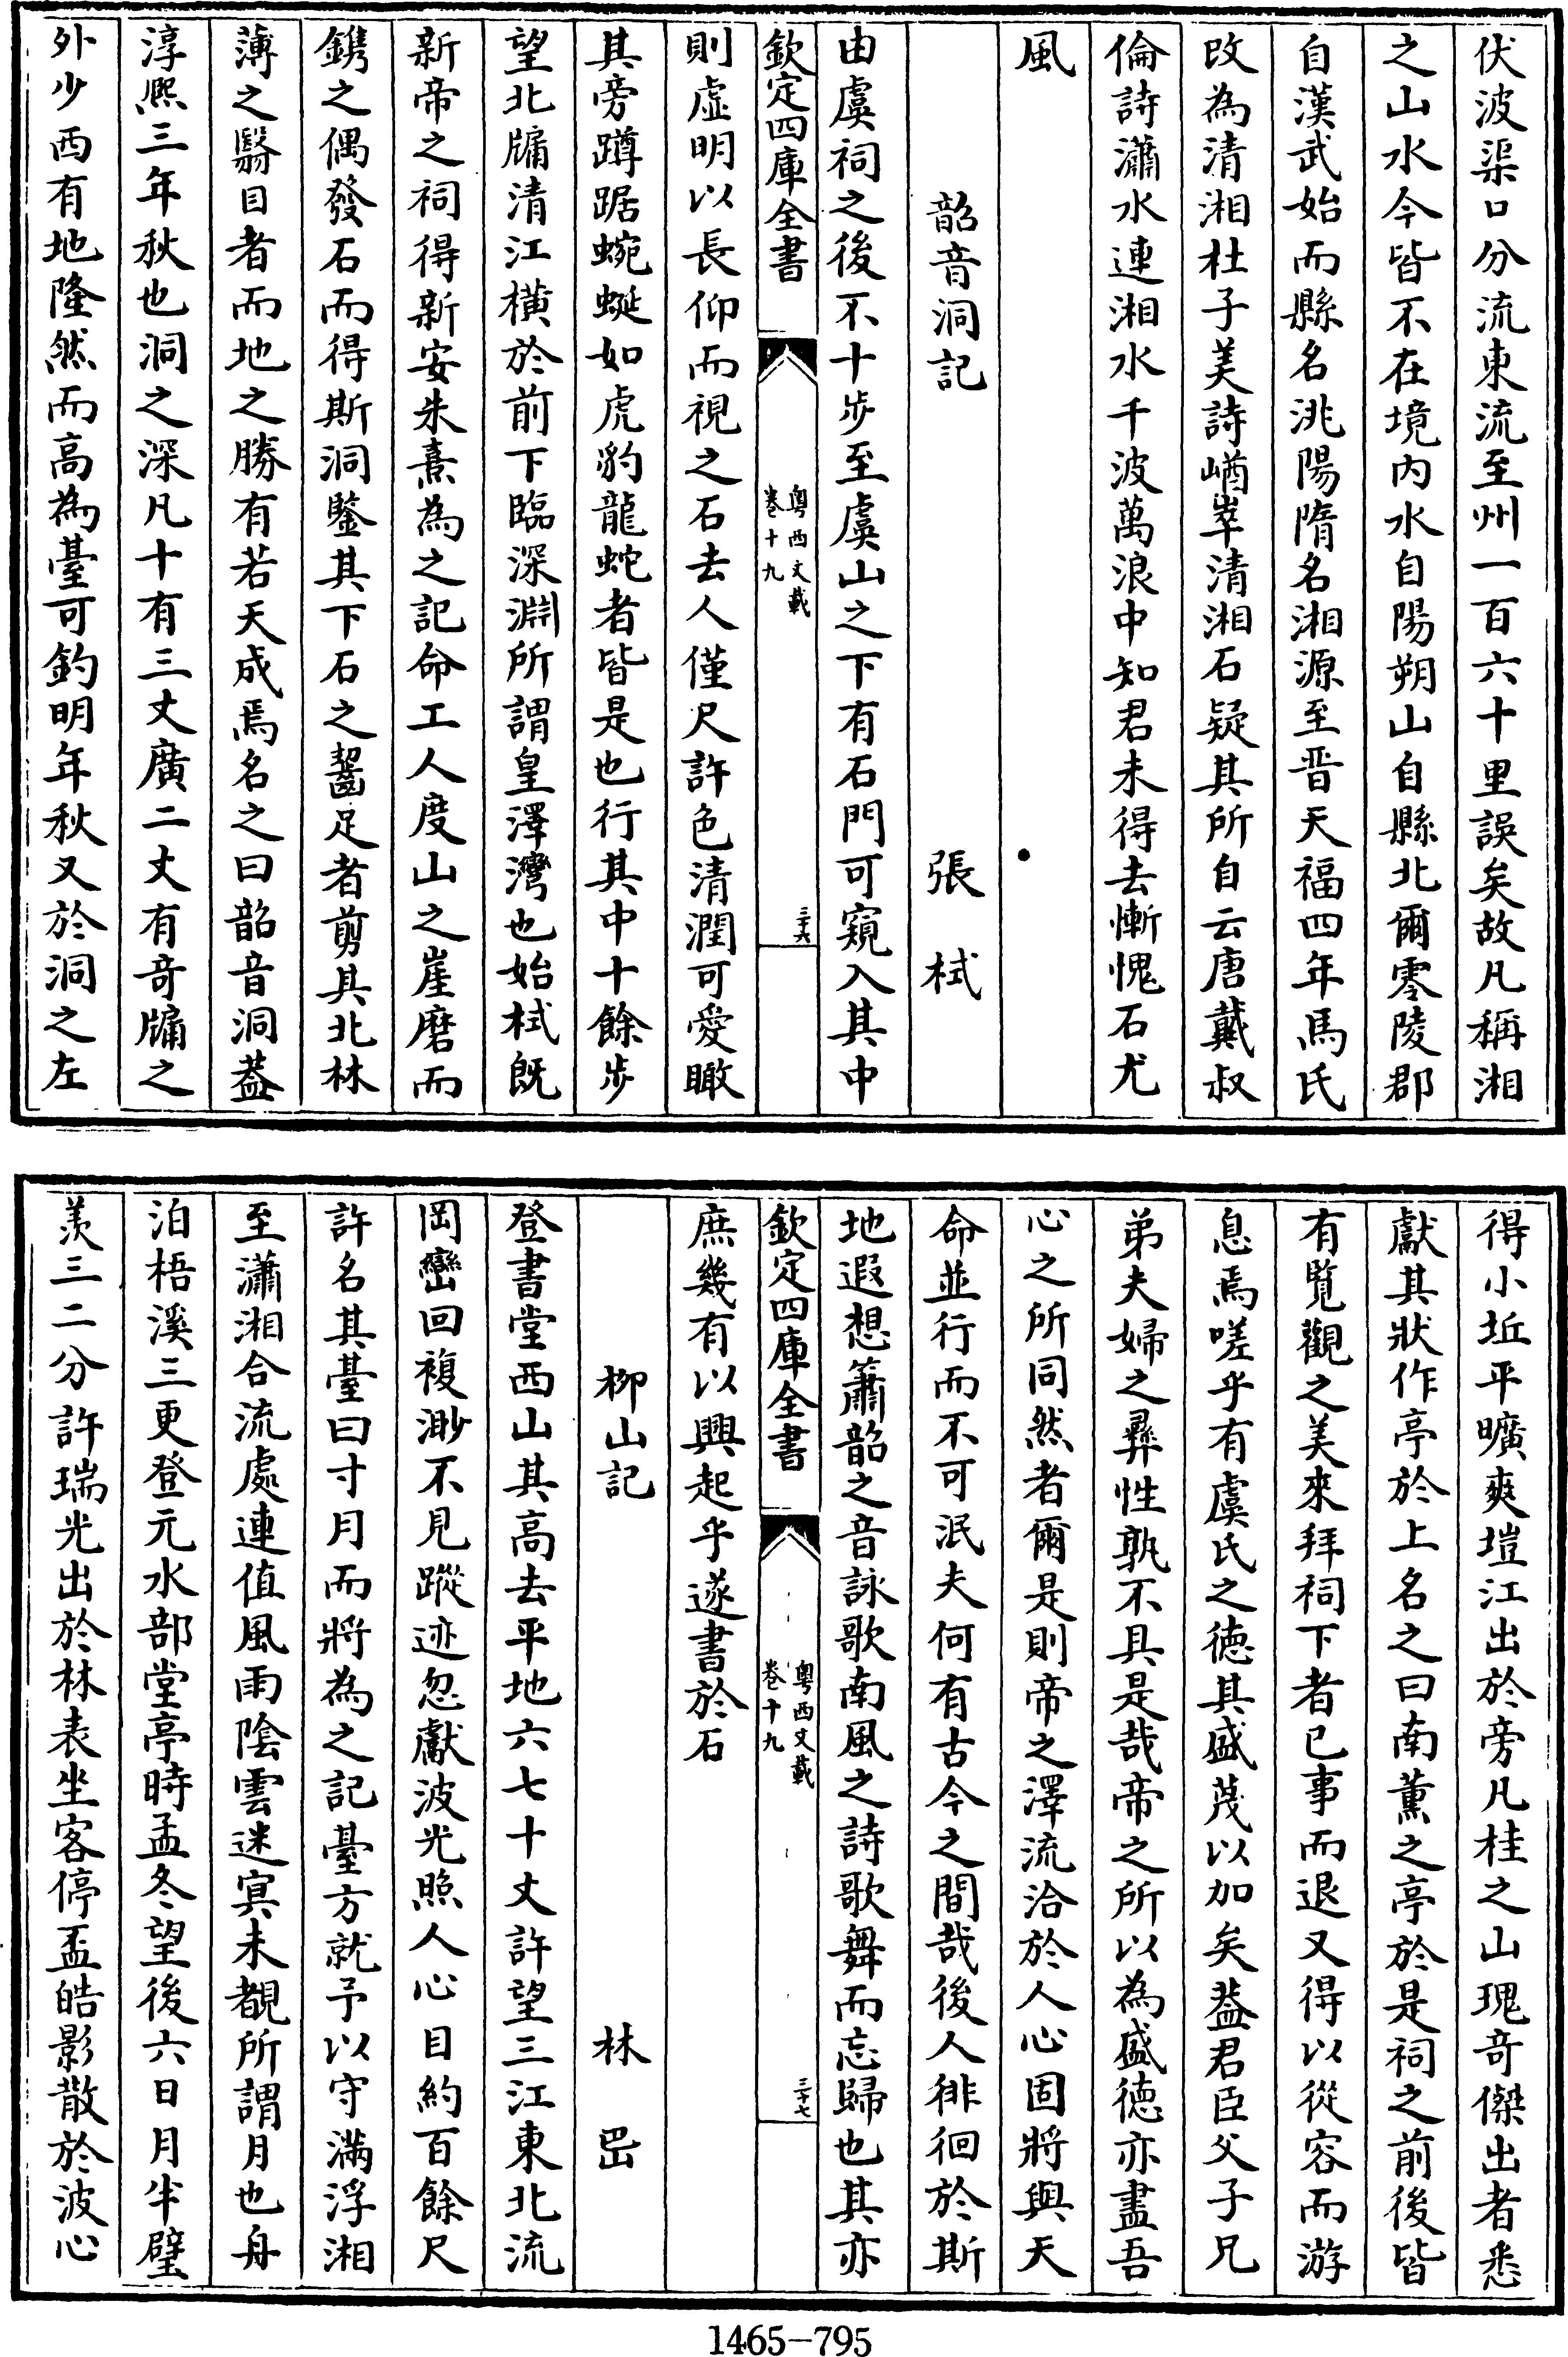 伏波渠口分流東流至州一百六十里誤矣故凡稱湘
之山水今皆不在境内水自陽朔山自縣北爾零陵郡
自漢武始而縣名洮陽隋名湘源至晋天福四年馬氏
改為清湘杜子美詩崷崒清湘石疑其所自云唐戴叔
倫詩瀟水連湘水千波萬浪中知君未得去慚愧石尤
風
韶音洞記 張栻
由虞祠之後不十步至虞山之下有石門可窺入其中
欽定四庫全書 粤西文載 卷十九 三十六
則虛明以長仰而視之石去人僅尺許色清潤可愛瞰
其旁蹲踞蜿蜒如虎豹龍蛇者皆是也行其中十餘步
望北牖清江横於前下臨深淵所謂皇澤灣也始栻既
新帝之祠得新安朱熹為之記命工人度山之崖磨而
鐫之偶發石而得斯洞鑿其下石之齧足者剪其北林
薄之翳目者而地之勝有若天成焉名之曰韶音洞葢
淳熈三年秋也洞之深凡十有三丈廣二丈有奇牖之
外少西有地隆然而高為臺可釣明年秋又於洞之左
得小坵平曠爽塏江出於旁凡桂之山瑰奇傑出者悉
獻其狀作亭於上名之曰南薰之亭於是祠之前後皆
有覧觀之美來拜祠下者已事而退又得以從容而游
息焉嗟乎有虞氏之徳其盛茂以加矣葢君臣父子兄
弟夫婦之彞性孰不具是哉帝之所以為盛徳亦盡吾
心之所同然者爾是則帝之澤流洽於人心固將與天
命並行而不可泯夫何有古今之間哉後人徘徊於斯
地遐想簫韶之音詠歌南風之詩歌舞而忘歸也其亦
欽定四庫全書 粤西文載 卷十九 三十七
庶幾有以興起乎遂書於石
柳山記 林岊
登書堂西山其高去平地六七十丈許望三江東北流
岡巒回複渺不見蹤迹忽獻波光照人心目約百餘尺
許名其臺曰寸月而將為之記臺方就予以守滿浮湘
至瀟湘合流處連值風雨陰雲迷㝠未覩所謂月也舟
泊梧溪三更登元水部堂亭時孟冬望後六日月半璧
羡三二分許瑞光出於林表坐客停盃皓影散於波心
1465-795